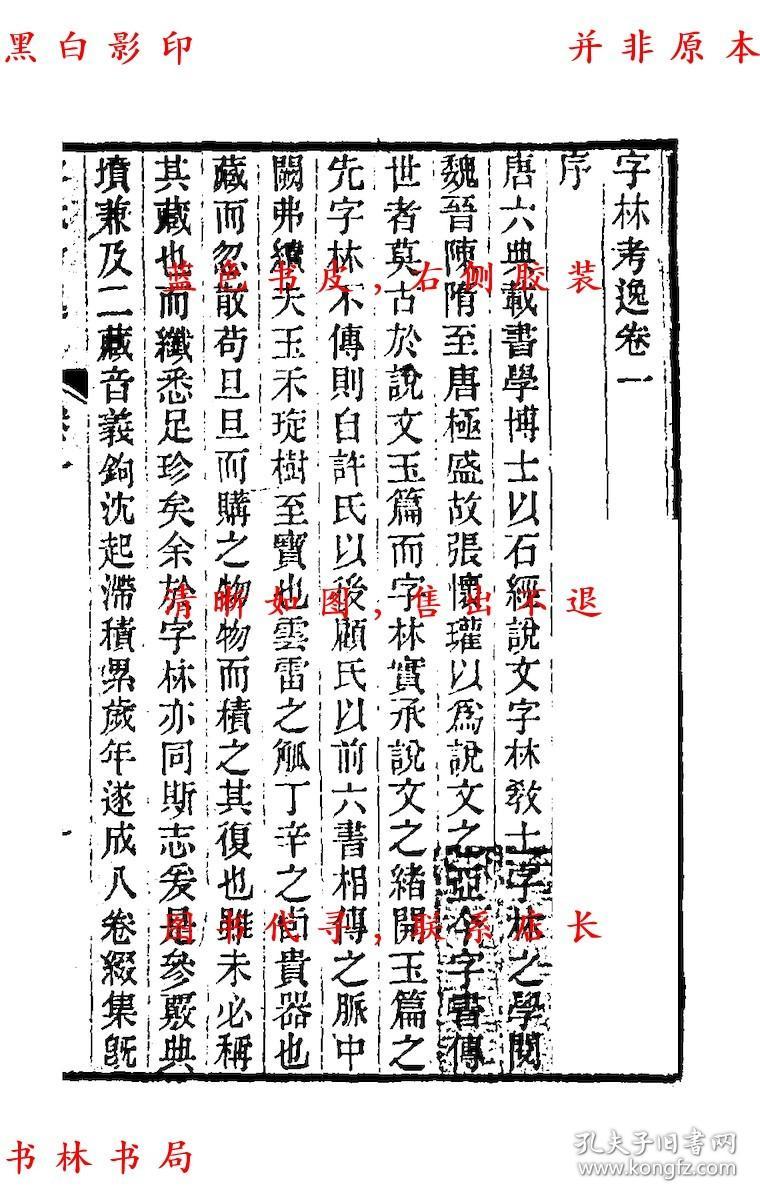 黑白影印
并非原本
字林考逸卷一
序
唐六典載書學博士以石經說文字林教士字林之學閱
魏晉陳隋至唐極盛故張懷瓘以爲說文之亞今字書傳
世者莫古於說文玉篇而字林實承說文之緒開玉篇之
先字林不傳則自許氏以後顧氏以前六書相傳之脈中
闕弗續夫玉禾琁樹至寶也雲雷之觚丁辛之卣貴器也
藏而忽散苟旦旦而購之物物而積之其復也雖未必稱
其藏也而纖悉足珍矣余於字林亦同斯志爰是參覈典
墳兼及二藏音義鉤沈起滯積累歲年遂成八卷綴集既
蓝色书皮，右侧胶装
清晰如图，售出不退
图书代寻，联系店长
书林书局
孔夫子旧书网
www.kongfz.com